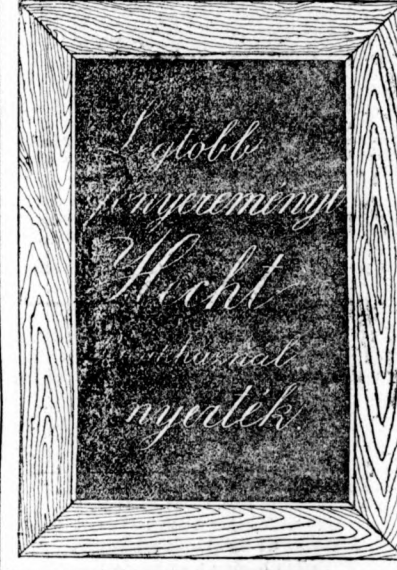 Legtöbb
főnyereményt
Hecht
bankháznál
nyerték.